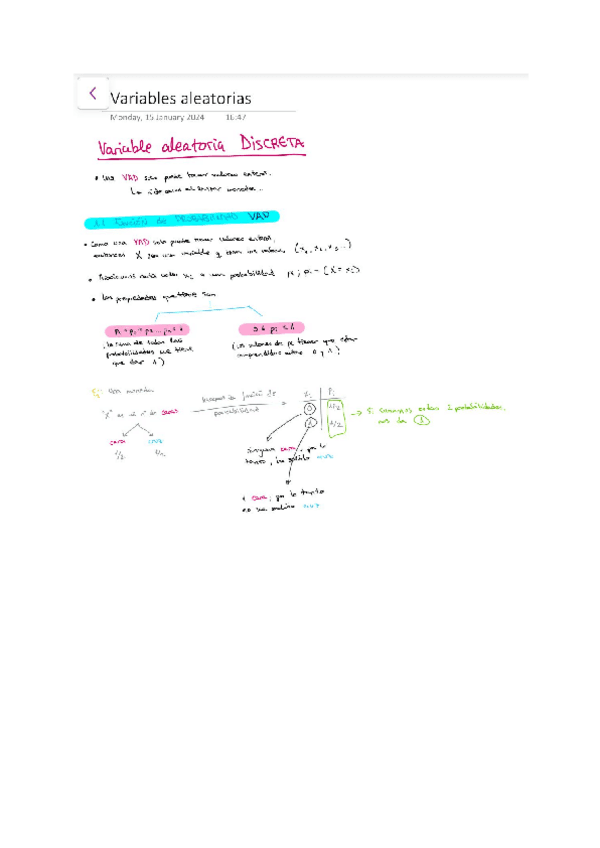 Variables aleatorias
Monday, 15 January 2024 16:47
Variable aleatoria DISCRETA
• Una VAD solo puede tomar valores enteros.
Función de PROBABILIDAD VAD
• Como una VAD solo puede tomar valores enteros,
entonces X una variable y valores (x1, x2, x3...)
• cada valor xi a una probabilidad pi; pi = (X = xi)
• Las propiedades que tiene son
0 ≤ pi ≤ 1
(la suma de todas las
probabilidades me tiene
que dar 1)
(Los valores de pi tienen que estar
comprendidos entre 0 y 1)
Ej: Una moneda
"X" es el nº de caras
cara cruz
1/2 1/2
función de
probabilidad
=
xi pi
0 1/2
1 1/2
→ Si sumamos estas 2 probabilidades,
nos da 1
ninguna cara, por lo
tanto, ha salido cruz
1 cara, por lo tanto
no ha salido cruz